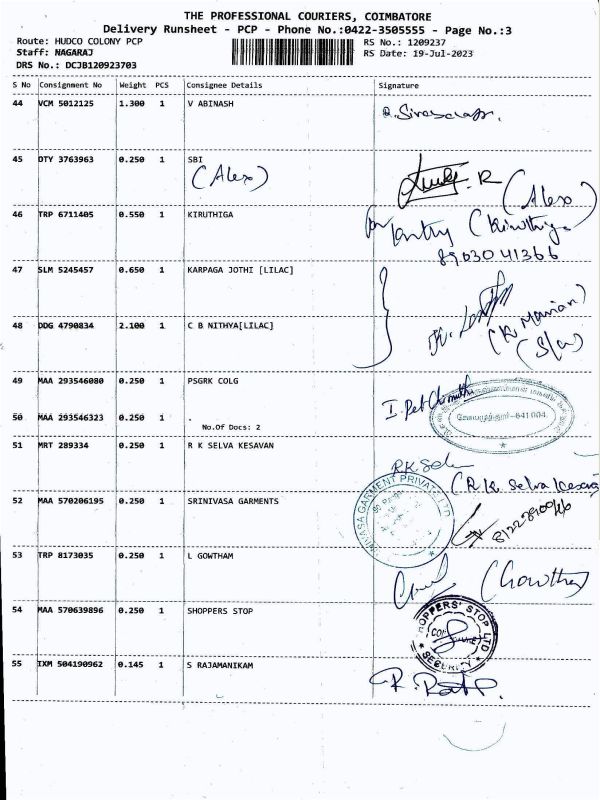 THE PROFESSIONAL COURIERS, COIMBATORE
Delivery Runsheet - PCP - Phone No.:0422-3505555 - Page No.:3
Route: HUDCO COLONY PCP RS No.: 1209237
Staff: NAGARAJ RS Date: 19-Jul-2023
DRS No.: DCJB120923703
S No Consignment No Weight PCS Consignee Details Signature
44 VCM 5012125 1.300 1 V ABINASH
45 DTY 3763963 0.250 1 SBI
(Alex) R (Alex)
46 TRP 6711405 0.550 1 KIRUTHIGA
8903041366
47 SLM 5245457 0.650 1 KARPAGA JOTHI [LILAC]
48 DDG 4790834 2.100 1 C B NITHYA[LILAC]
49 MAA 293546080 0.250 1 PSGRK COLG
50 MAA 293546323 0.250 1 .
641 004.
No.Of Docs: 2
51 MRT 289334 0.250 1 R K SELVA KESAVAN
(R K Selva
52 MAA 570206195 0.250 1 SRINIVASA GARMENTS
GARMENT PRIVATE LTD
53 TRP 8173035 0.250 1 L GOWTHAM
54 MAA 570639896 0.250 1 SHOPPERS STOP
SHOPPERS' STOP LTD
SECURITY
55 IXM 504190962 0.145 1 S RAJAMANIKAM